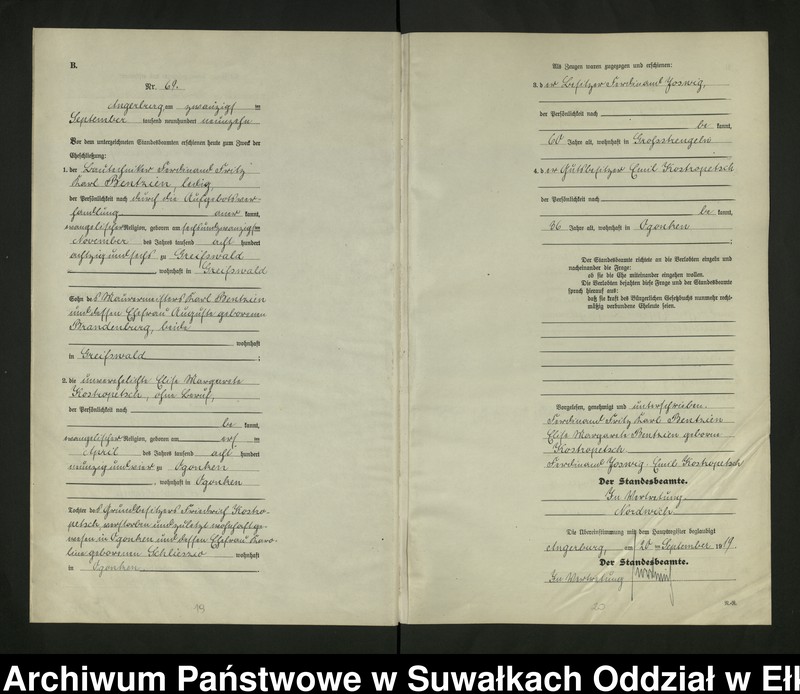 B.
Nr. 69.
Angerburg am zwanzigsten
September tausend neunhundert neunzehn
Vor dem unterzeichneten Standesbeamten erschienen heute zum Zweck der
Eheschließung:
1. der Bautechniker Ferdinand Fritz
Karl Bentzien, ledig,
der Persönlichkeit nach durch die Aufgebotsver-
handlung aner kannt,
evangelischer Religion, geboren am sechsundzwanzigsten
November des Jahres tausend acht hundert
achtzig und sechs zu Greifswald
, wohnhaft in Greifswald
Sohn des Maurermeisters Karl Bentzien
und dessen Ehefrau Auguste geborenen
Brandenburg, beide
wohnhaft
in Greifswald ;
2. die unverehelichte Elise Margarete
Kostropetsch, ohne Beruf,
der Persönlichkeit nach
be kannt,
evangelischer Religion, geboren am elf ten
April des Jahres tausend acht hundert
neunzig und vier zu Ogonken
, wohnhaft in Ogonken
Tochter des Grundbesitzers Friedrich Kostro-
petsch, verstorben und zuletzt wohnhaft ge-
wesen in Ogonken und dessen Ehefrau Karo-
line geborenen wohnhaft
in Ogonken
19
Als Zeugen waren zugezogen und erschienen:
3. der Besitzer Ferdinand Joswig,
der Persönlichkeit nach
be kannt,
60 Jahre alt, wohnhaft in Grossstrengeln
4. der Gutsbesitzer Emil Kostropetsch
der Persönlichkeit nach
be kannt,
36 Jahre alt, wohnhaft in Ogonken
;
Der Standesbeamte richtete an die Verlobten einzeln und
nacheinander die Frage:
ob sie die Ehe miteinander eingehen wollen.
Die Verlobten bejahten diese Frage und der Standesbeamte
sprach hierauf aus:
daß sie kraft des Bürgerlichen Gesetzbuchs nunmehr recht-
mäßig verbundene Eheleute seien.
Vorgelesen, genehmigt und unterschrieben.
Ferdinand Fritz Karl Bentzien
Elise Margarete Bentzien geborene
Kostropetsch
Ferdinand Joswig. Emil Kostropetsch
Der Standesbeamte.
In Vertretung
Die Übereinstimmung mit dem Hauptregister beglaubigt
Angerburg, am 20 ten September 1919.
Der Standesbeamte.
In Vertretung
20
Archiwum Państwowe w Suwałkach Oddział w Ełk